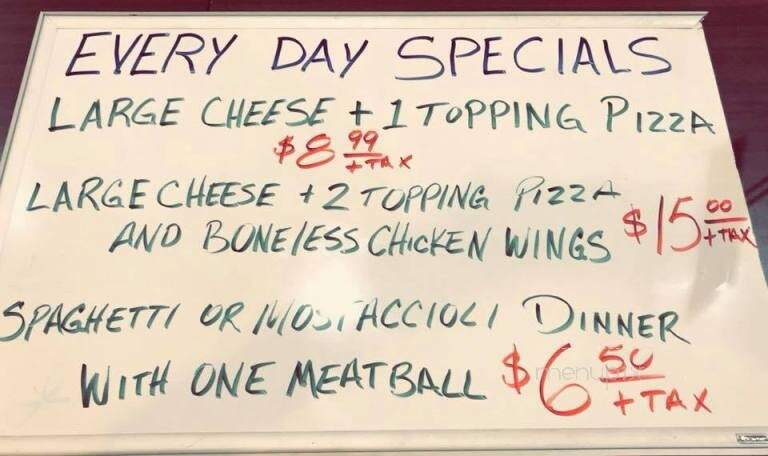 EVERY DAY SPECIALS
LARGE CHEESE + 1 TOPPING PIZZA
$8 99 + TAX
LARGE CHEESE + 2 TOPPING PIZZA
AND BONELESS CHICKEN WINGS $15 00 + TAX
SPAGHETTI OR MOSTACCIOLI DINNER
WITH ONE MEATBALL $6 50 + TAX